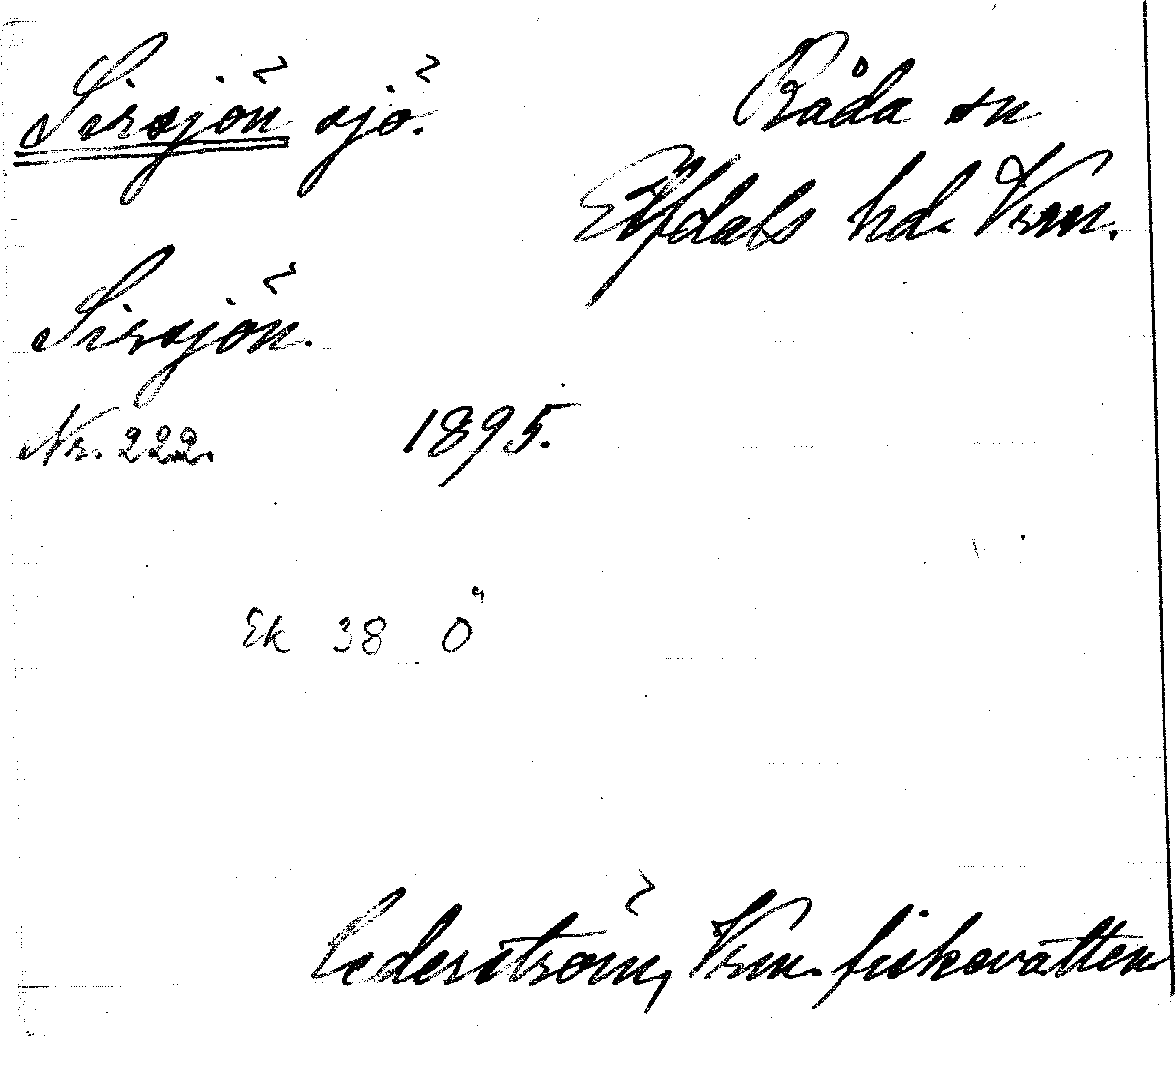 Sirsjön sjö. Råda sn
Elfdals hd. Vrm.
Sirsjön.
Nr. 222. 1895.
Ek 38 Ö
Cederström, Vrm. fiskevatten